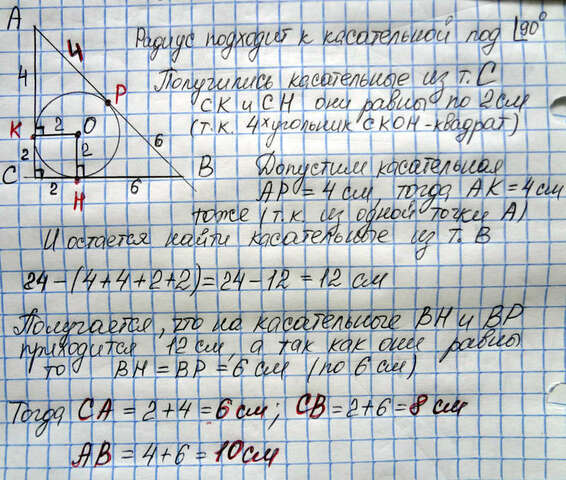 A
4
4
P
Радиус подходит к касательной под ∟90°
Получились касательные из т. C
CK и CH они равны по 2 см
(т.к. 4хугольник CKOH - квадрат)
K
2
O
2
2
6
C
2
H
6
B
Допустим касательная
AP = 4 см, тогда AK = 4 см
тоже (т.к из одной точки A)
И остается найти касательные из т. B
24 - (4+4+2+2) = 24 - 12 = 12 см
Получается, что на касательные BH и BP
приходится 12 см, а так как они равны
то BH = BP = 6 см (по 6 см)
Тогда CA = 2+4 = 6 см; CB = 2+6 = 8 см
AB = 4+6 = 10 см